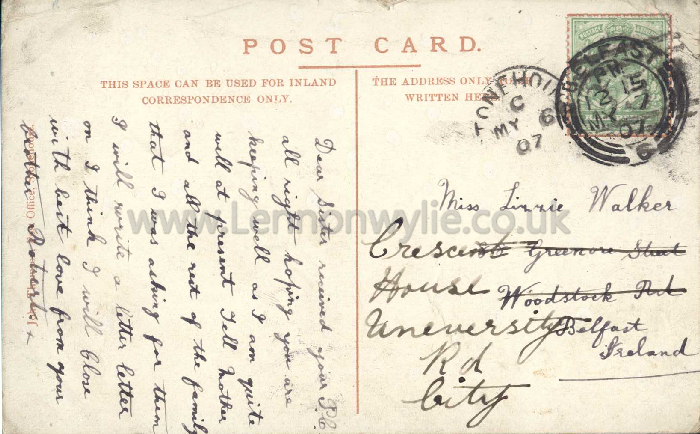 POST CARD.
THIS SPACE CAN BE USED FOR INLAND
CORRESPONDENCE ONLY.
THE ADDRESS ONLY
WRITTEN HE
TONEHOU
C
MY 6
07
BELFAST
PM
12 15
MY 7
07
6
Dear Sister received your P.C.
all right hoping you are
keeping well as I am quite
well at present Tell Mother
and all the rest of the family
that I was asking for them
I will write a letter letter
on I think I will Close
with best love from your
brother Robert
Miss Lizzie Walker
Greenore Street
Woodstock Rd
Belfast
Ireland
Crescent
House
Uneversity
Rd
City
www.Lennonwylie.co.uk